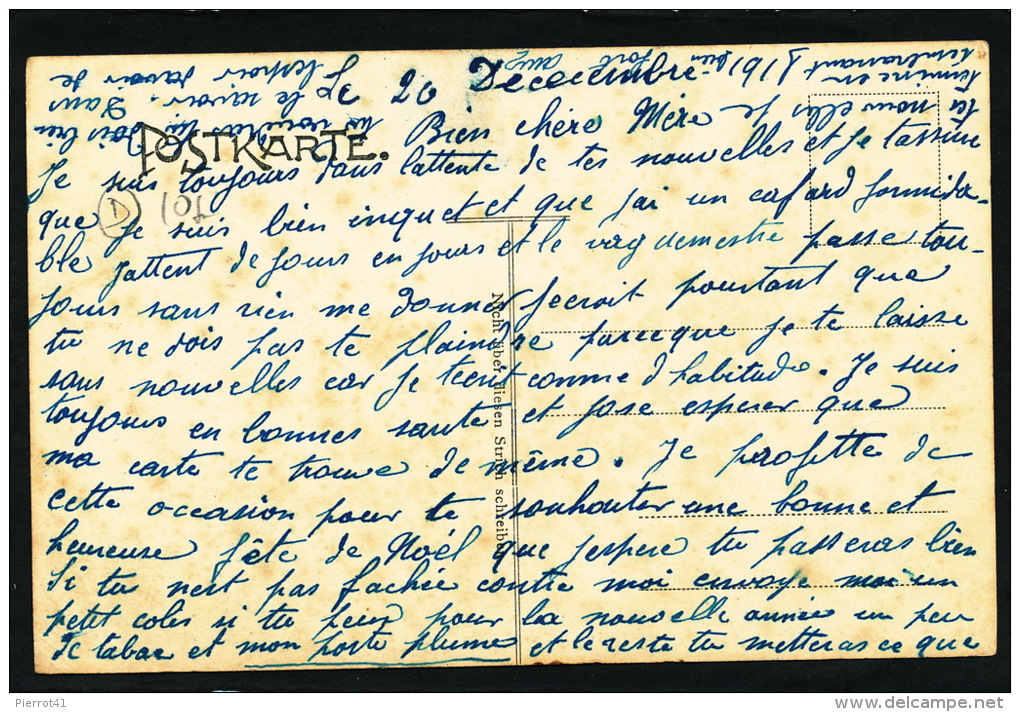 Le 20 Dececembre 191
POSTKARTE.
Bien chère Mère Je
Je suis toujours dans lattente de tes nouvelles et je tassure
que je suis bien inquet et que jai un cafard formida-
ble jattent de jours en jours et le vagdemestre passe tou-
jours sans rien me donner jecroit pourtant que
tu ne dois pas te plaindre parceque je te laisse
sans nouvelles car je tecrit comme d habitude. Je suis
toujours en bonnes sante et jose esperer que
ma carte te trouve de même. Je profitte de
cette occasion pour te souhaiter une bonne et
heureuse fête de Noél que jespere tu passeras bien
Si tu nest pas fachée contre moi envoye moi un
petit coles si tu peux pour la nouvelle année un peu
de tabac et mon porte plume et le reste tu metteras ce que
tu voudras
Dans lespoir davoir de
tes nouvelles
Nicht über diesen Strich schreiben
D 101
Pierrot41
www.delcampe.net